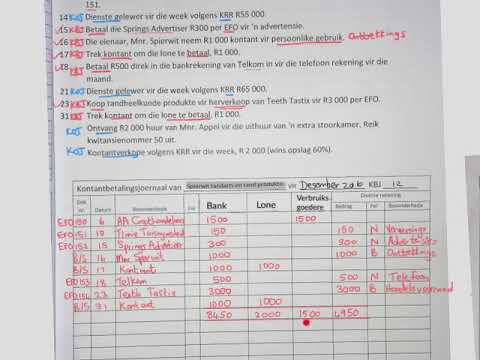 151.
14 KOJ Dienste gelewer vir die week volgens KRR R55 000.
15 KBJ Betaal die Springs Advertiser R300 per EFO vir 'n advertensie.
16 KBJ Die eienaar, Mnr. Spierwit neem R1 000 kontant vir persoonlike gebruik. Onttrekkings
17 KBJ Trek kontant om die lone te betaal, R1 000.
18 KBJ Betaal R500 direk in die bankrekening van Telkom in vir die telefoon rekening vir die
maand.
21 KOJ Dienste gelewer vir die week volgens KRR R65 000.
23 KBJ Koop tandheelkunde produkte vir herverkoop van Teeth Tastix vir R3 000 per EFO.
31 KBJ Trek kontant om die lone te betaal, R1 000.
KOJ Ontvang R2 000 huur van Mnr. Appel vir die uithuur van 'n extra stoorkamer. Reik
kwitansienommer 50 uit.
KOJ Kontantverkope volgens KRR vir die week, R 2 000 (wins opslag 60%).
Kontantbetalingsjoernaal van Spierwit tandarts en tand produkte vir Desember 20.6 KBJ 12
Dok nr. Datum Besonderhede Fol Bank Lone Verbruiks goedere Diverse rekening
Bedrag Fol Besonderhede
EFO 150 6 1500 1500
EFO 151 150 150 N
EFO 152 15 Springs Advertiser 300 300 N
B/S 16 Mnr Spierwit 1000 1000 B Onttrekkings
B/S 17 Kontant 1000 1000
EFO 153 18 Telkom 500 500 N Telefoon
EFO 154 23 Teeth Tastix 3000 3000 B Handelsvoorraad
B/S 31 Kontant 1000 1000
8450 2000 1500 4950